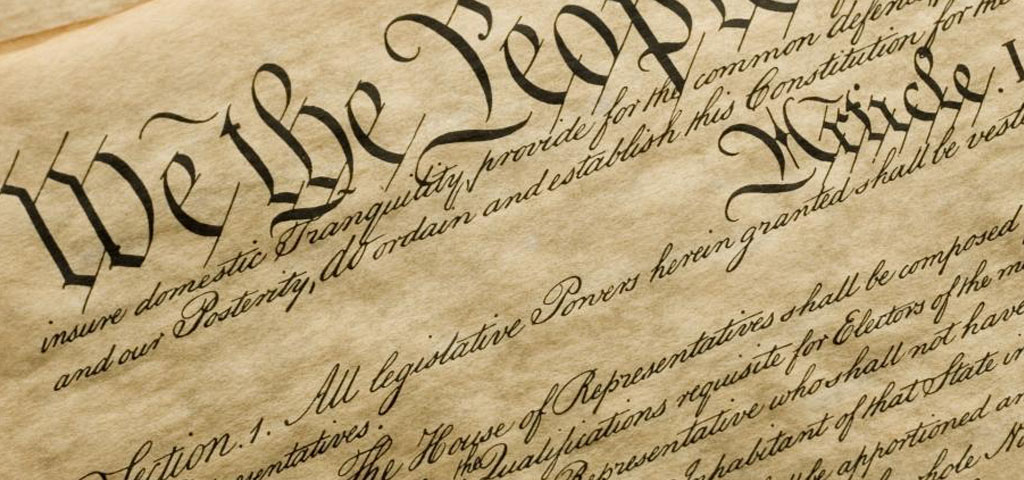 We the People
insure domestic Tranquility, provide for the common defence
and our Posterity, do ordain and establish this Constitution for the
Article. I
Section. 1. All legislative Powers herein granted shall be vest
sentatives.
The House of Representatives shall be composed
the Qualifications requisite for Electors of the m
Representative who shall not have
Inhabitant of that State in
be apportioned an
whole N